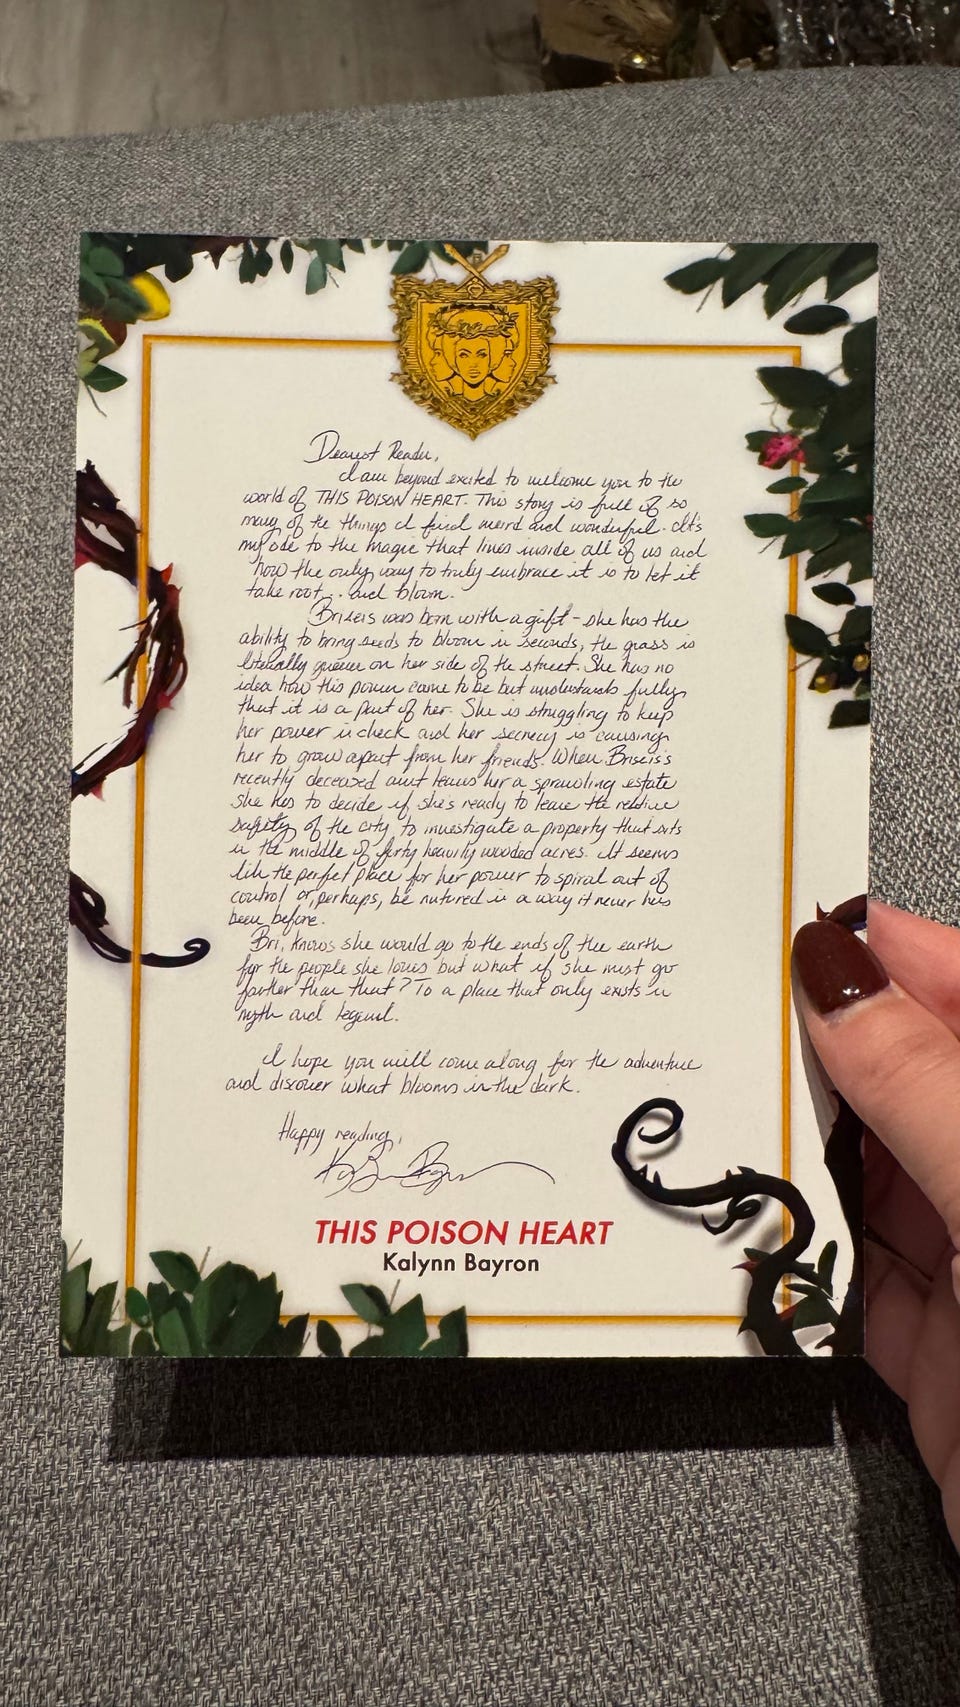 Dearest Reader,
I am beyond excited to welcome you to the
world of THIS POISON HEART. This story is full of so
many of the things I find weird and wonderful. It's
my ode to the magic that lives inside all of us and
how the only way to truly embrace it is to let it
take root... and bloom.
Briseis was born with a gift - she has the
ability to bring seeds to bloom in seconds, the grass is
literally greener on her side of the street. She has no
idea how this power came to be but understands fully
that it is a part of her. She is struggling to keep
her power in check and her secrecy is causing
her to grow apart from her friends. When Briseis's
recently deceased aunt leaves her a sprawling estate
she has to decide if she's ready to leave the relative
safety of the city to investigate a property that sits
in the middle of forty heavily wooded acres. It seems
like the perfect place for her power to spiral out of
control or, perhaps, be nutured in a way it never has
been before.
Bri, knows she would go to the ends of the earth
for the people she loves but what if she must go
farther than that? To a place that only exists in
myth and legend.
I hope you will come along for the adventure
and discover what blooms in the dark.
Happy reading,
THIS POISON HEART
Kalynn Bayron